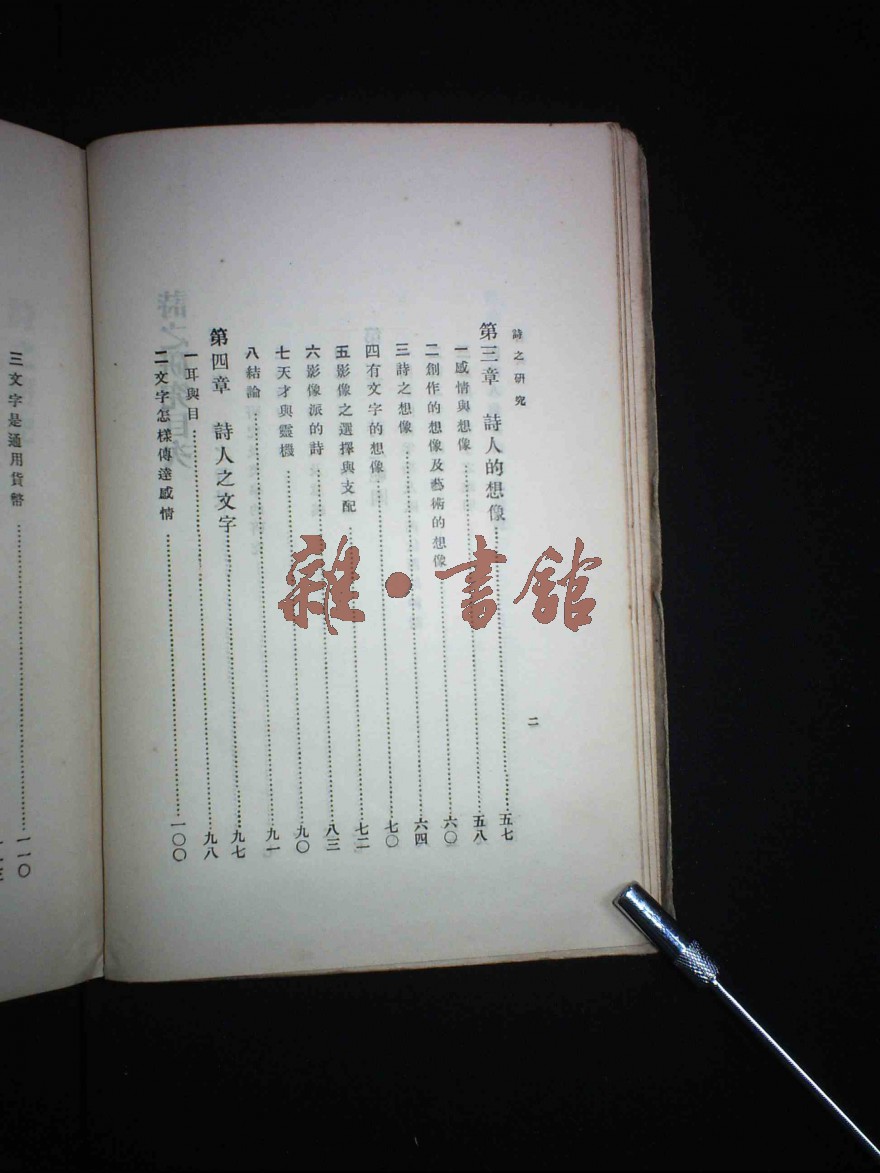 詩之研究
二
第三章　詩人的想像……五七
一感情與想像……五八
二創作的想像及藝術的想像……六〇
三詩之想像……六四
四有文字的想像……七〇
五影像之選擇與支配……七二
六影像派的詩……八三
七天才與靈機……九〇
八結論……九一
第四章　詩人之文字……九七
一耳與目……九八
二文字怎樣傳達感情……一〇〇
三文字是通用貨幣……一一〇
雜·書館